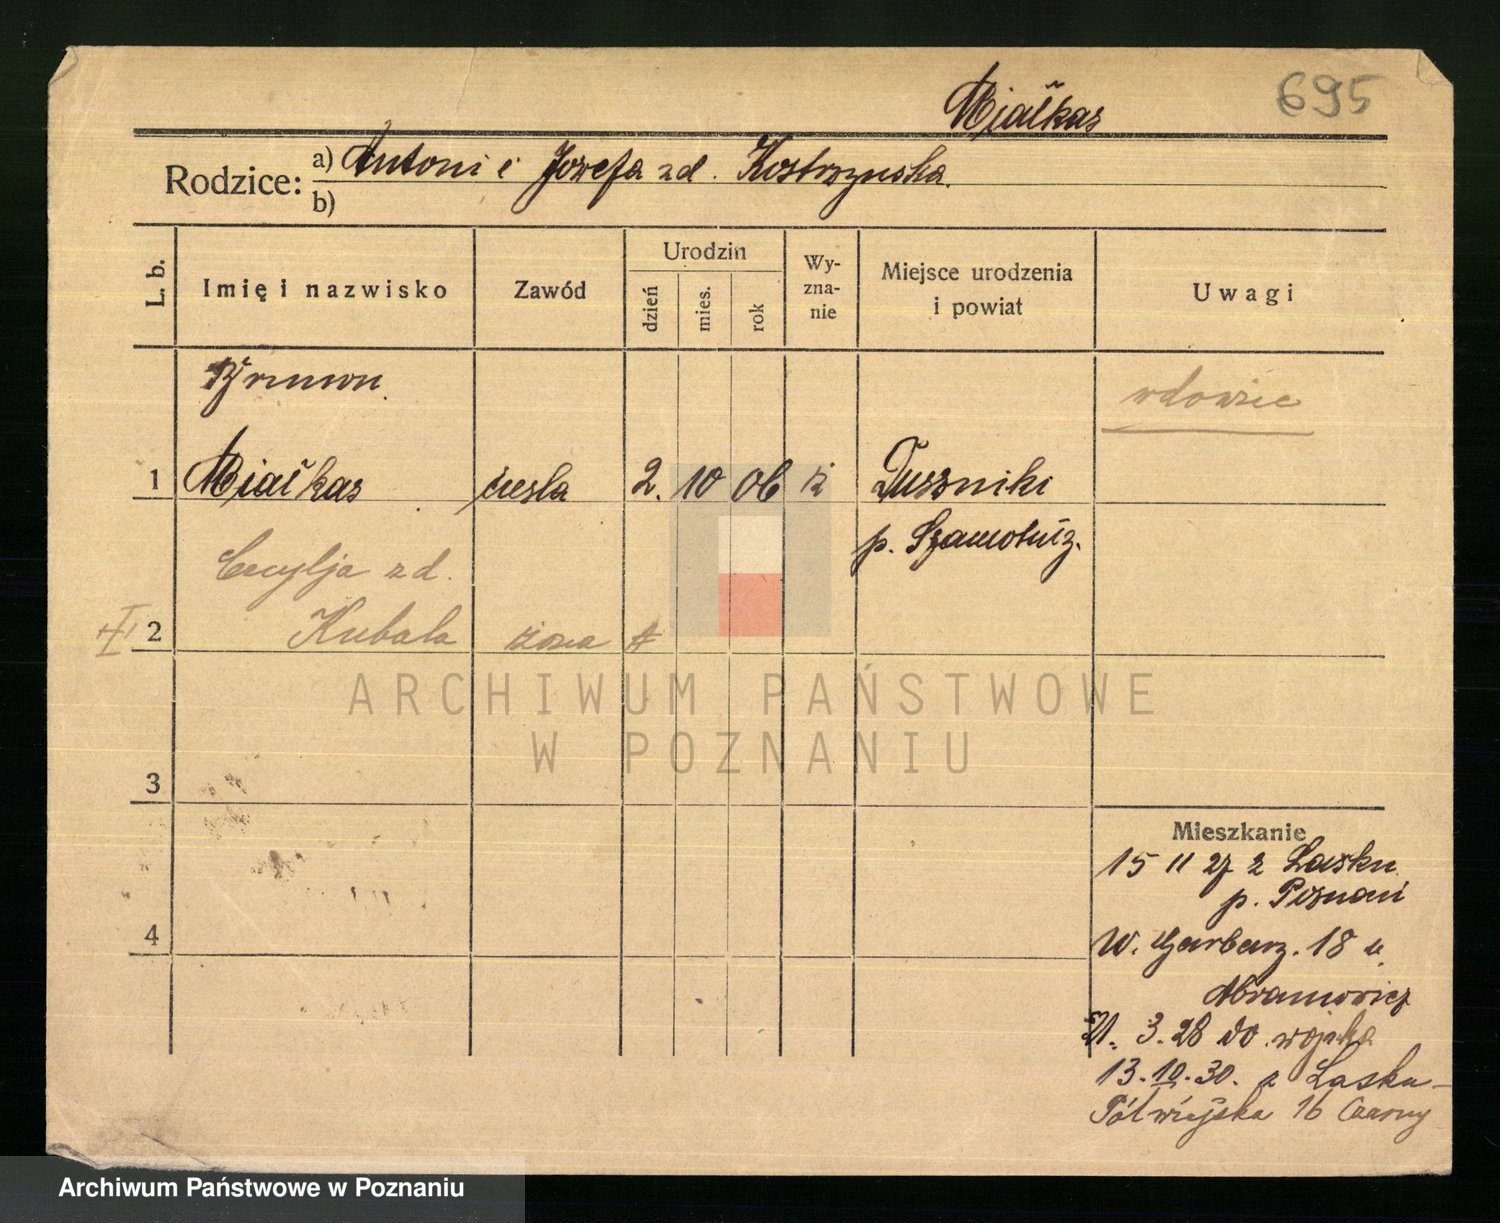 Miałkas 695
Rodzice: a) Antoni i Jozefa zd. Kostrzynska.
b)
L. b. Imię i nazwisko Zawód Urodzin dzień mies. rok Wyznanie Miejsce urodzenia i powiat Uwagi
wdowiec
1 Miałkas cieśla 2. 10 06 Duszniki
p. Szamotuły.
Cecylja zd.
2 Kubala żona
3
4
Mieszkanie
15 11 27 z Lasku
p. Poznań
W. Garbarz. 18 u.
Abramowicz
21. 3. 28 do wojska
13. 10. 30. z Lasku -
Półwiejska 16 Czarny
ARCHIWUM PAŃSTWOWE
W POZNANIU
Archiwum Państwowe w Poznaniu